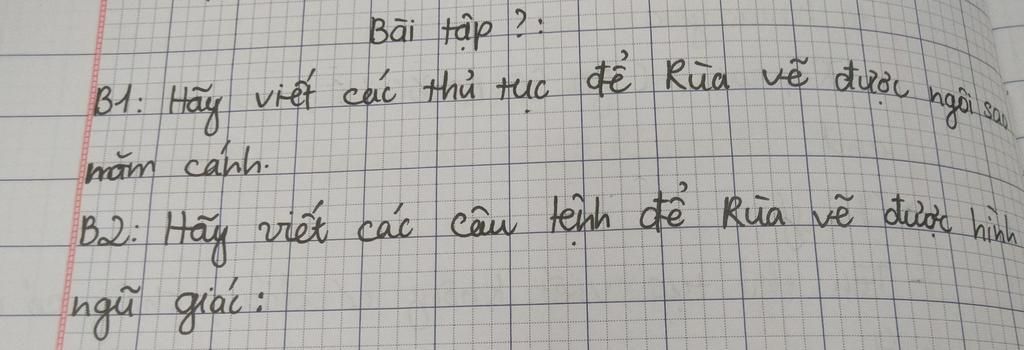 Bài tập ?:
B1: Hãy viết các thủ tục để Rùa vẽ được ngôi sao
năm cánh.
B2: Hãy viết các câu lệnh để Rùa vẽ được hình
ngũ giác: